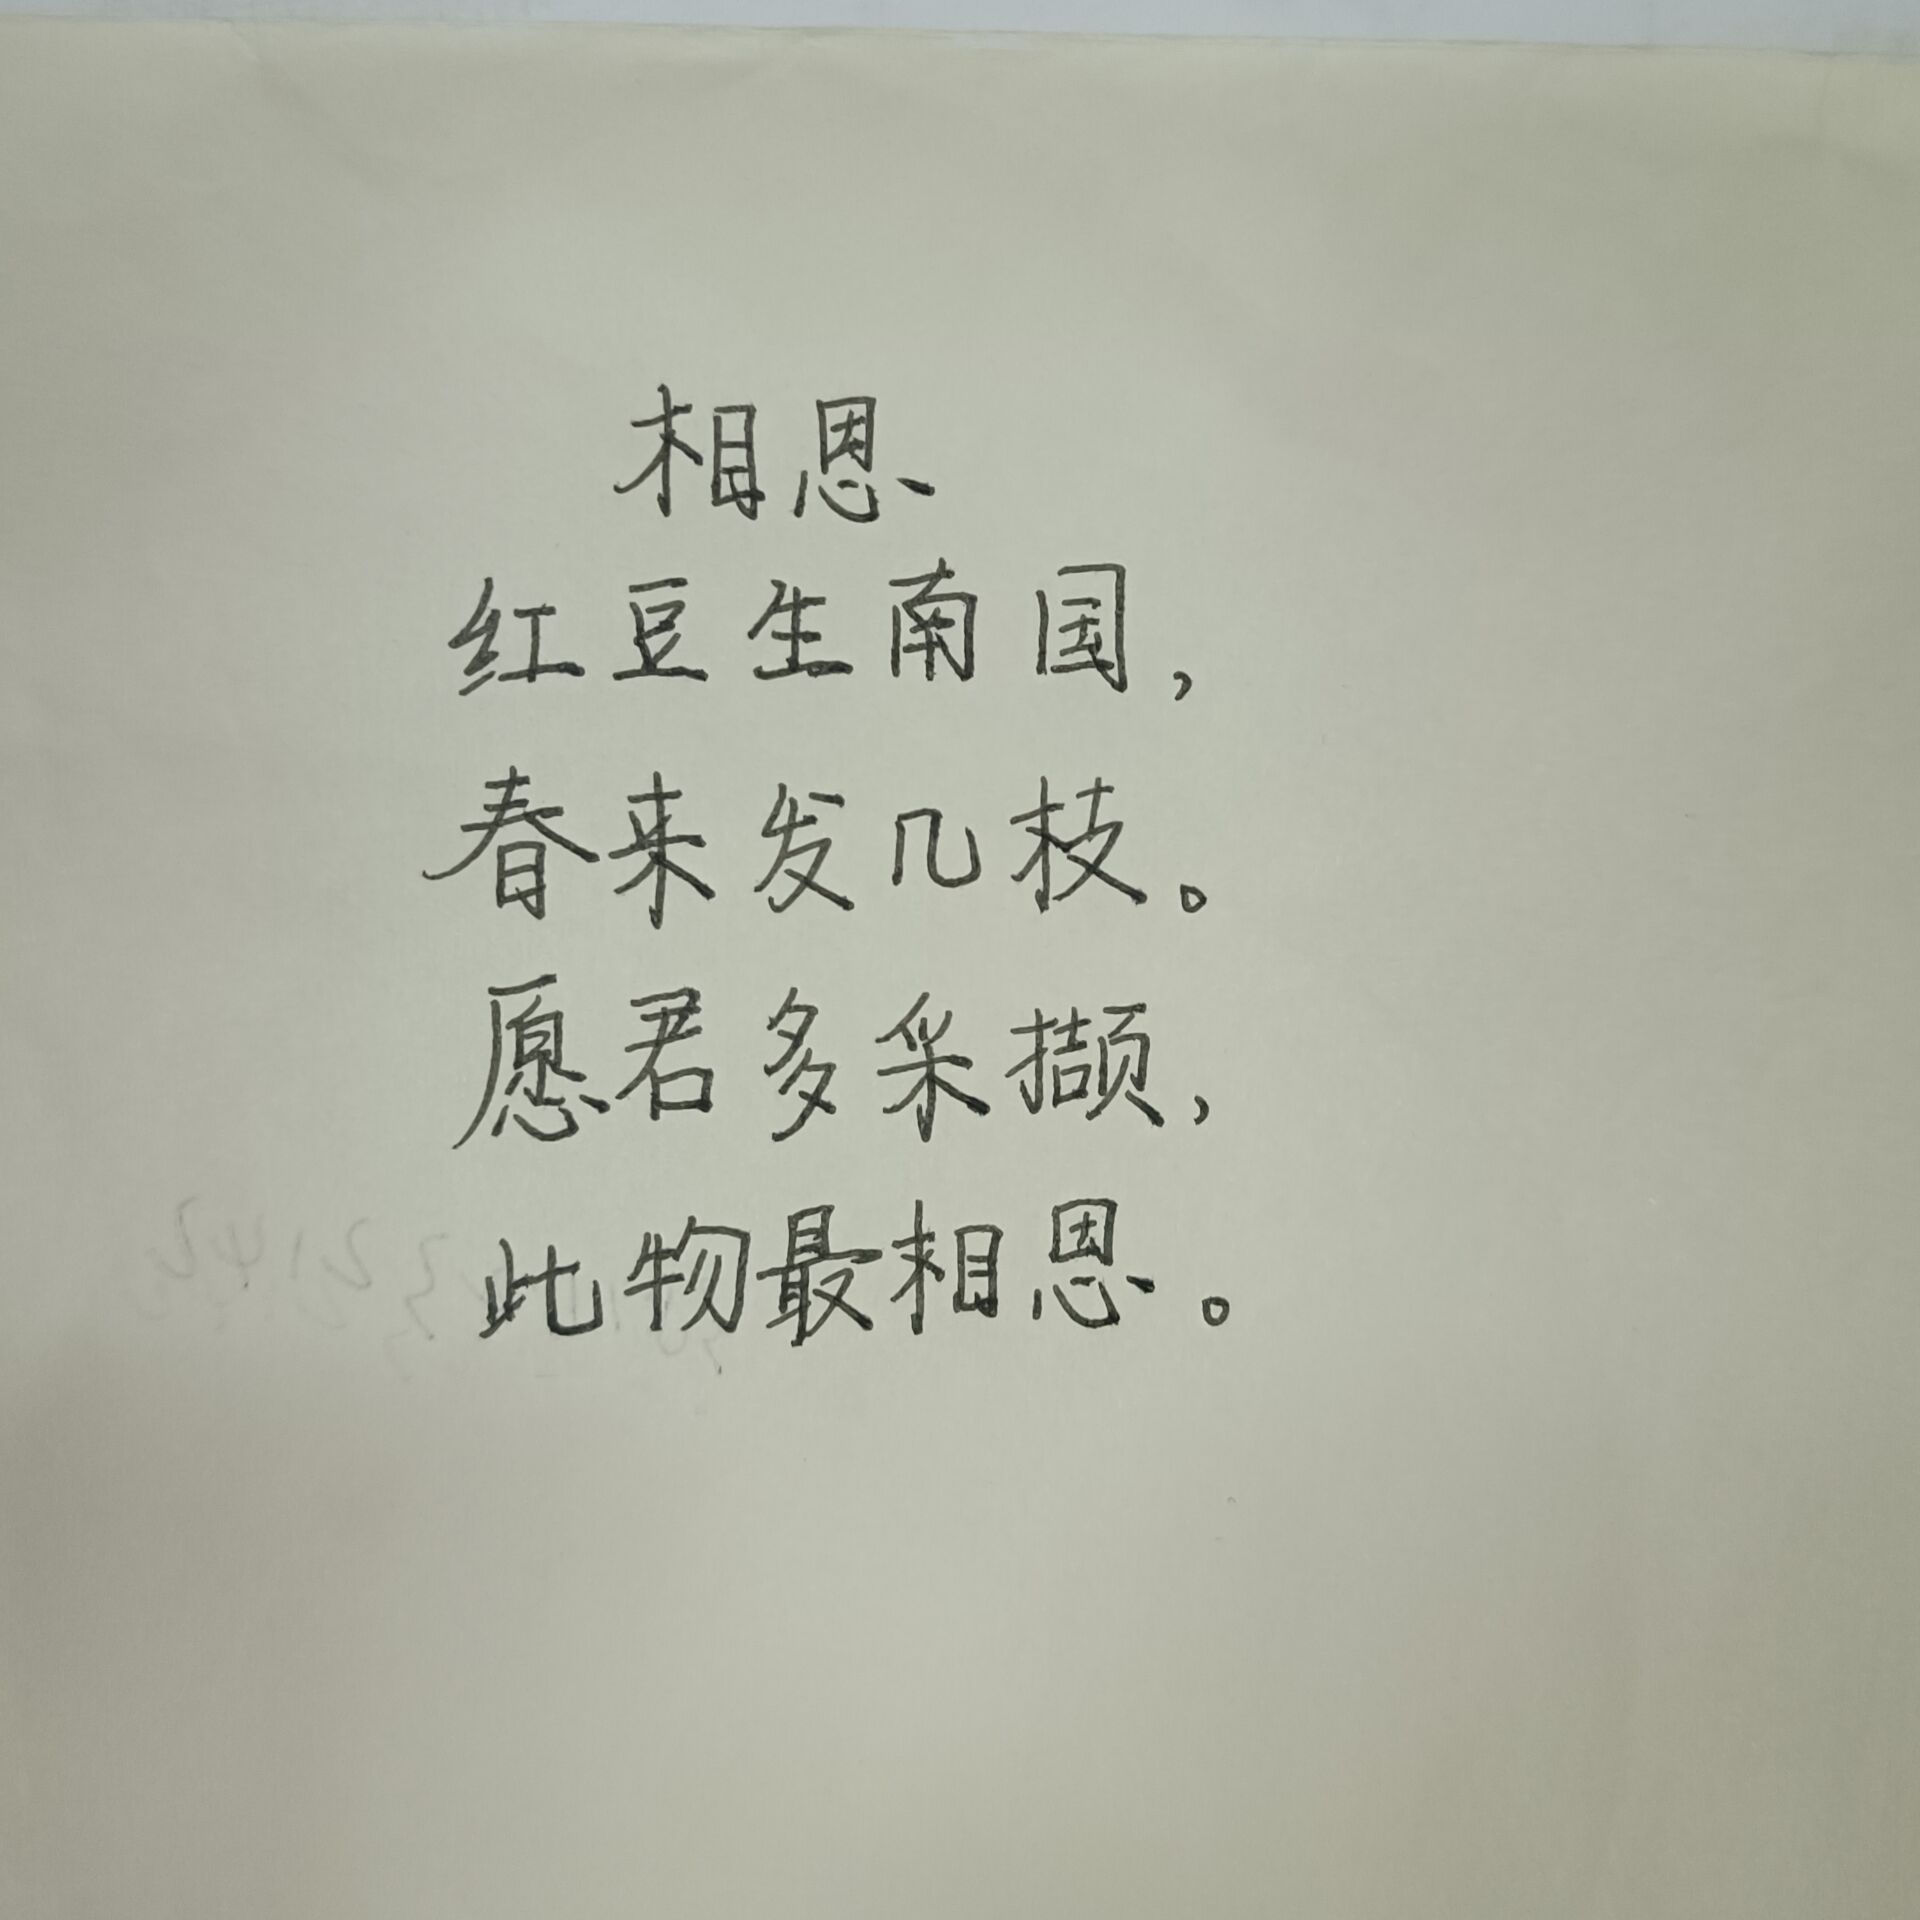 相恩
红豆生南国,
春来发几枝。
愿君多采撷,
此物最相恩。